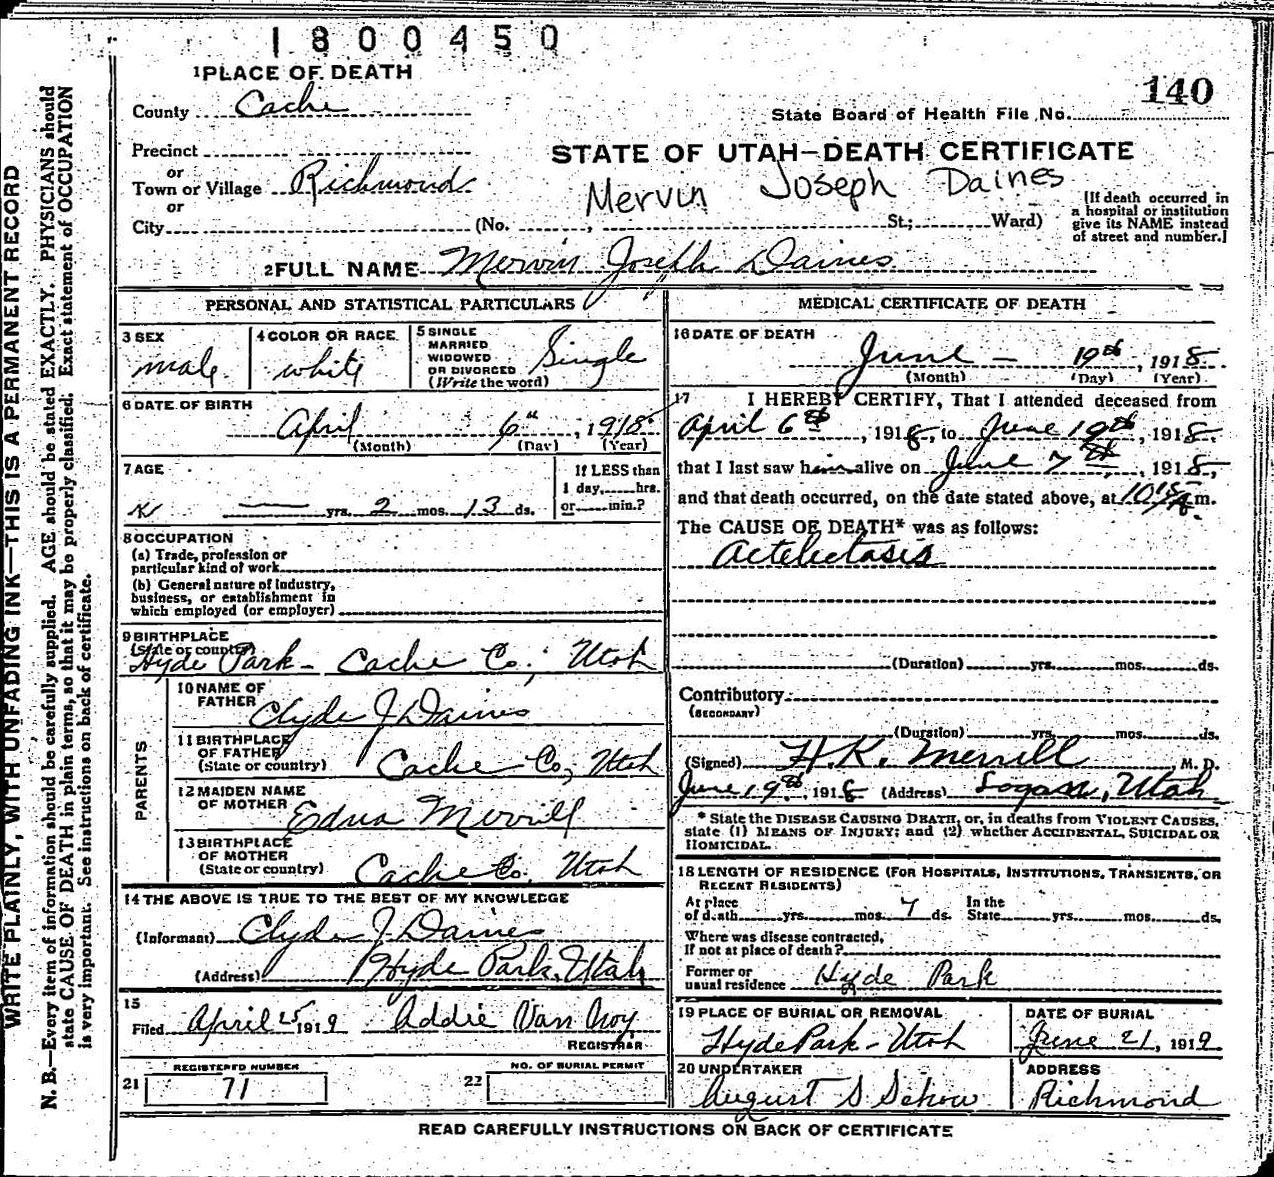 1800450
1 PLACE OF DEATH
140
County Cache
State Board of Health File No.
Precinct
STATE OF UTAH—DEATH CERTIFICATE
or
Town or Village Richmond
Mervin Joseph Daines
or
City (No. , St.; Ward)
(If death occurred in
a hospital or institution
give its NAME instead
of street and number.]
2 FULL NAME Mervin Joseph Daines
PERSONAL AND STATISTICAL PARTICULARS
3 SEX
male
4 COLOR OR RACE
white
5 SINGLE
MARRIED
WIDOWED
OR DIVORCED
(Write the word)
Single
6 DATE OF BIRTH
April 6th, 1918
(Month) (Day) (Year)
7 AGE
— yrs. 2 mos. 13 ds.
If LESS than
1 day, hrs.
or min.?
8 OCCUPATION
(a) Trade, profession or
particular kind of work
(b) General nature of Industry,
business, or establishment in
which employed (or employer)
9 BIRTHPLACE
(State or country)
Hyde Park - Cache Co; Utah
PARENTS
10 NAME OF
FATHER
Clyde J Daines
11 BIRTHPLACE
OF FATHER
(State or country)
Cache Co, Utah
12 MAIDEN NAME
OF MOTHER
Edna Merrill
13 BIRTHPLACE
OF MOTHER
(State or country)
Cache Co, Utah
14 THE ABOVE IS TRUE TO THE BEST OF MY KNOWLEDGE
(Informant) Clyde J. Daines
(Address) Hyde Park, Utah
15
Filed April 25 1919 Addie Van Noy
REGISTRAR
REGISTERED NUMBER
21 71
NO. OF BURIAL PERMIT
22
MEDICAL CERTIFICATE OF DEATH
16 DATE OF DEATH
June — 19th, 1918
(Month) (Day) (Year)
17 I HEREBY CERTIFY, That I attended deceased from
April 6th, 1918, to June 19th, 1918,
that I last saw him alive on June 7th, 1918,
and that death occurred, on the date stated above, at 10:15 A.m.
The CAUSE OF DEATH* was as follows:
Actelectasis
(Duration) yrs. mos. ds.
Contributory
(SECONDARY)
(Duration) yrs. mos. ds.
(Signed) H. K. Merrill M. D.
June 19th, 1918 (Address) Logan, Utah
* State the DISEASE CAUSING DEATH, or, in deaths from VIOLENT CAUSES,
state (1) MEANS OF INJURY; and (2) whether ACCIDENTAL, SUICIDAL OR
HOMICIDAL.
18 LENGTH OF RESIDENCE (FOR HOSPITALS, INSTITUTIONS, TRANSIENTS, OR
RECENT RESIDENTS)
At place
of death yrs. mos. 7 ds.
In the
State yrs. mos. ds.
Where was disease contracted,
If not at place of death?
Former or
usual residence Hyde Park
19 PLACE OF BURIAL OR REMOVAL
Hyde Park - Utah
DATE OF BURIAL
June 21, 1919.
20 UNDERTAKER
August S Schow
ADDRESS
Richmond
READ CAREFULLY INSTRUCTIONS ON BACK OF CERTIFICATE
WRITE PLAINLY, WITH UNFADING INK—THIS IS A PERMANENT RECORD
N. B.—Every item of information should be carefully supplied. AGE should be stated EXACTLY. PHYSICIANS should
state CAUSE OF DEATH in plain terms, so that it may be properly classified. Exact statement of OCCUPATION
is very important. See instructions on back of certificate.